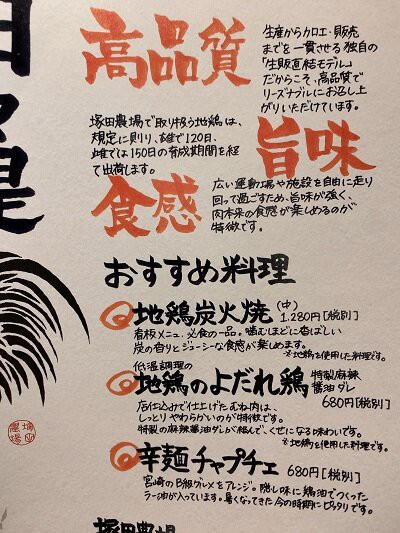 高品質
生産から加工・販売
までを一貫させる独自の
「生販直結モデル」
だからこそ、高品質で
リーズナブルにお召し上
がりいただけています。
塚田農場で取り扱う地鶏は、
規定に則り、雄で120日、
雌では150日の育成期間を経
て出荷します。
旨味
食感
広い運動場や施設を自由に走り
回って過ごすため、旨味が強く、
肉本来の食感が楽しめるのが
特徴です。
おすすめ料理
地鶏炭火焼 (中) 1.280円[税別]
看板メニュー、必食の一品。噛むほどに香ばしい
炭の香りとジューシーな食感が楽しめます。
※地鶏を使用した料理です。
低温調理の
地鶏のよだれ鶏 特製麻辣
醤油ダレ
680円[税別]
店仕込みで仕上げたむね肉は、
しっとりやわらかいのが特徴です。
特製の麻辣醤油ダレが絡んで、くせになる味わいです。
※地鶏を使用した料理です。
辛麺チャプチェ 680円[税別]
宮崎のB級グルメをアレンジ。隠し味に鶏油でつくった
ラー油が入っています。暑くなってきた今の時期にピッタリです。
塚田農場